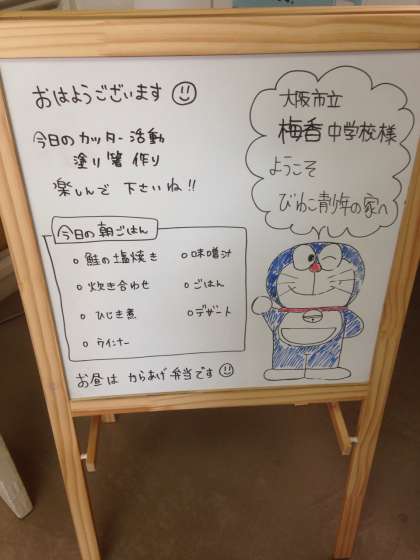 おはようございます
今日のカッター活動
塗り箸作り
楽しんで下さいね!!
大阪市立
梅香中学校様
ようこそ
びわこ青少年の家へ
今日の朝ごはん
鮭の塩焼き
味噌汁
炊き合わせ
ごはん
ひじき煮
デザート
ウインナー
お昼はからあげ弁当です